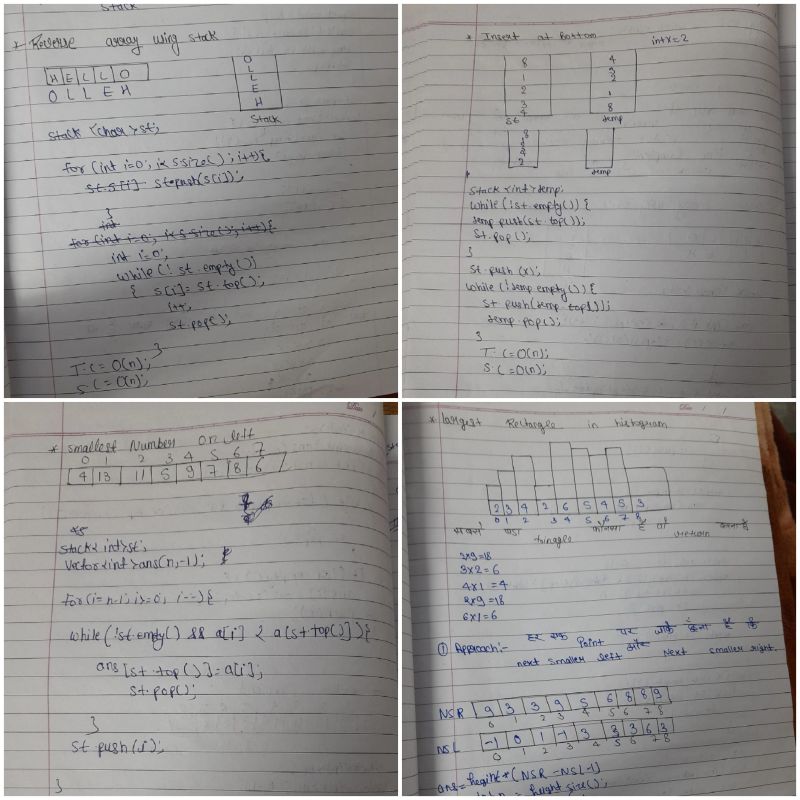 stack
* Reverse array using stack
H E L L O
O L L E H
O
L
L
E
H
Stack
stack <char> st;
for (int i=0; i< s.size(); i++){
st.push(s[i]);
}
int
for (int i=0; i< s.size(); i++){
int i=0;
while (! st.empty())
{ s[i]= st.top();
i++;
st.pop();
}
T.C = O(n);
S.C = O(n);
* Insert at Bottom int x=2
8
1
2
3
4
St
4
3
2
1
8
temp
temp
stack <int> temp;
while (!st.empty()) {
temp.push(st.top());
St.pop();
}
St.push (x);
while (!temp.empty()) {
st push(temp.top());
temp.pop();
}
T.C = O(n);
S.C = O(n);
* smallest Number on left
0 1 2 3 4 5 6 7
4 13 11 5 9 7 8 6
stack< int>st;
vector<int>ans(n,-1);
for(i= n-1; i>=0; i--){
while(!st.empty() && a[i] < a[st.top()]){
ans[st.top()]=a[i];
st.pop();
}
st push(i);
}
* largest Rectangle in histogram
2 3 4 2 6 5 4 5 3
0 1 2 3 4 5 6 7 8
सबसे बड़ा कौनसा है वो return करना है
2x9=18
3x2=6
4x1=4
2x9=18
6x1=6
① Approach:- हर एक Point पर
next smaller left और Next smaller right.
NSR 9 3 3 9 5 6 8 8 9
0 1 2 3 4 5 6 7 8
NSL -1 0 1 -1 3 3 3 6 3
0 1 2 3 4 5 6 7 8
ans= height*(NSR -NSL-1)
height.size();